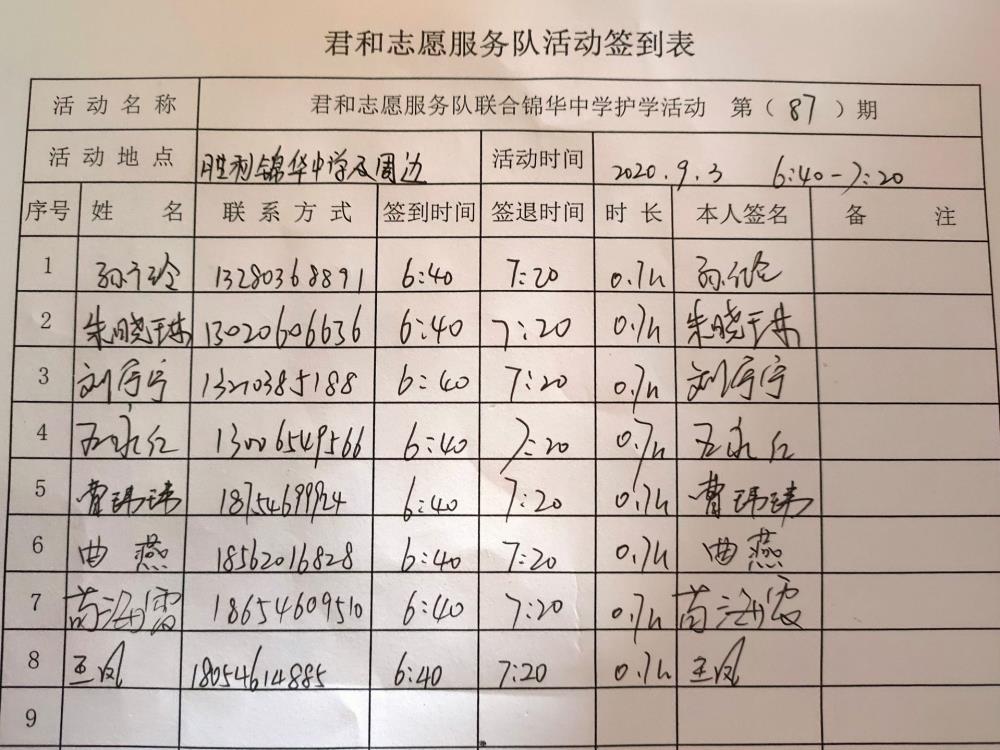 君和志愿服务队活动签到表
活动名称 君和志愿服务队联合锦华中学护学活动 第（87）期
活动地点 胜利锦华中学及周边 活动时间 2020.9.3 6:40-7:20
序号 姓名 联系方式 签到时间 签退时间 时长 本人签名 备注
1 13280368891 6:40 7:20 0.7h
2 朱晓琳 13020606636 6:40 7:20 0.7h 朱晓琳
3 13210385188 6:40 7:20 0.7h
4 13006549566 6:40 7:20 0.7h
5 曹玮玮 18754699924 6:40 7:20 0.7h 曹玮玮
6 曲燕 18562016828 6:40 7:20 0.7h 曲燕
7 18654609510 6:40 7:20 0.7h
8 王凤 18054614885 6:40 7:20 0.7h 王凤
9